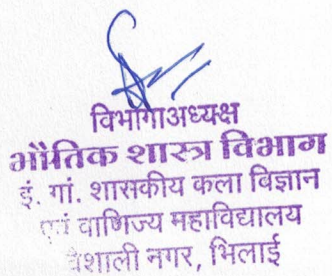 विभागाअध्यक्ष
भौतिक शास्त्र विभाग
इं. गां. शासकीय कला विज्ञान
एवं वाणिज्य महाविद्यालय
वैशाली नगर, भिलाई